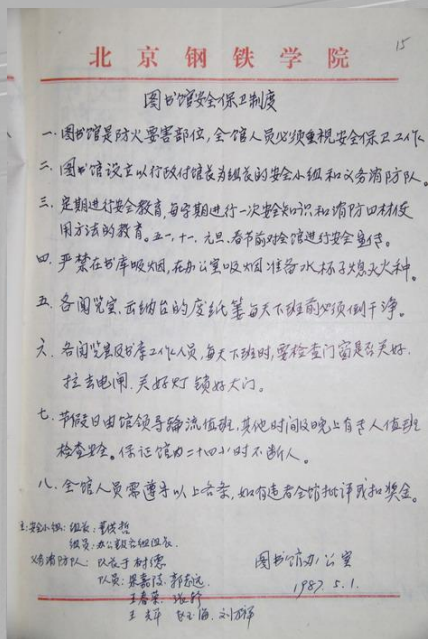 15
北京钢铁学院
图书馆安全保卫制度
一.图书馆是防火要害部位,全馆人员必须重视安全保卫工作
二.图书馆设立以行政付馆长为组长的安全小组和义务消防队。
三.定期进行安全教育,每学期进行一次安全知识和消防四材使
用方法的教育。五一.十一.元旦.春节前对全馆进行安全宣传。
四.严禁在书库吸烟,在办公室吸烟准备水杯子熄灭火种。
五.各阅览室.出纳台的废纸篓每天下班前必须倒干净。
六.各阅览室及书库工作人员,每天下班时,要检查门窗是否关好.
拉去电闸.关好灯锁好大门。
七.节假日由馆领导轮流值班.其他时间及晚上有专人值班
检查安全。保证馆内二十四小时不断人。
八.全馆人员需遵守以上各条,如有违者全馆批评或扣奖金。
安全小组:组长:董
组员:办公室各组组长
义务消防队:队长于树德
队员:梁嘉 郭志远
王春荣
王 海 刘
图书馆办公室
1987.5.1.